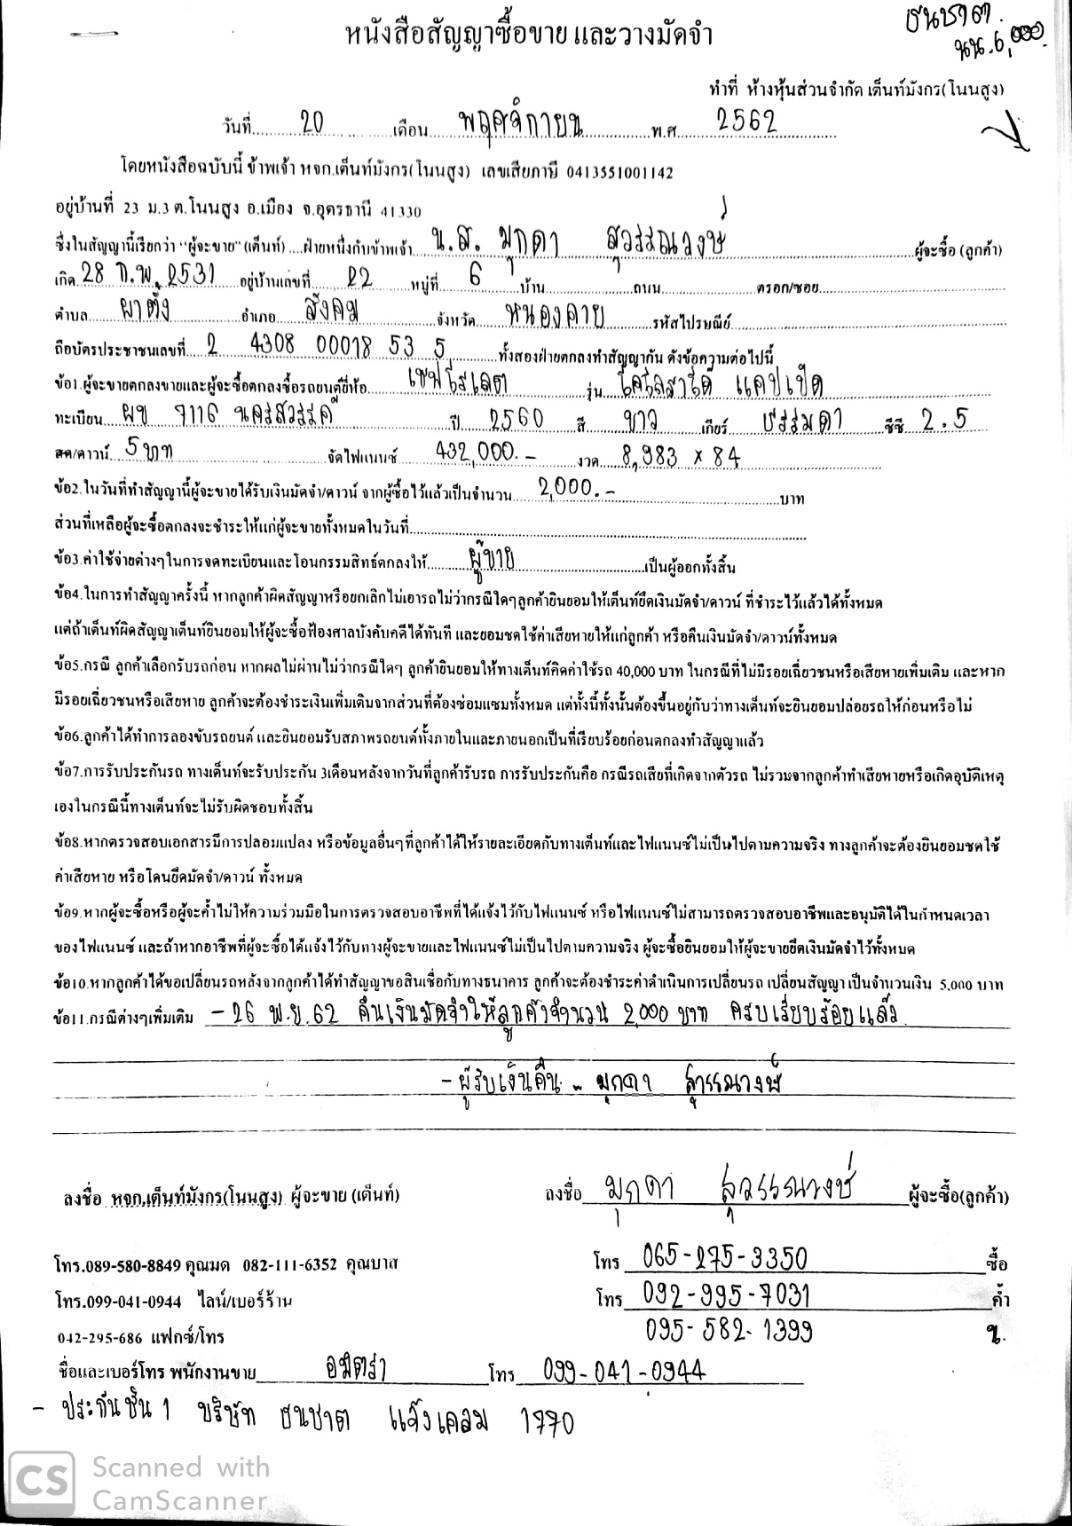 ธนชาต.
นน.6,000.
หนังสือสัญญาซื้อขาย และวางมัดจำ
ทำที่ ห้างหุ้นส่วนจำกัด เต็นท์มังกร(โนนสูง)
วันที่ 20 เดือน พฤศจิกายน พ.ศ 2562
โดยหนังสือฉบับนี้ ข้าพเจ้า หจก.เต็นท์มังกร(โนนสูง) เลขเสียภาษี 0413551001142
อยู่บ้านที่ 23 ม.3 ต.โนนสูง อ.เมือง จ.อุดรธานี 41330
ซึ่งในสัญญานี้เรียกว่า "ผู้จะขาย" (เต็นท์) ....ฝ่ายหนึ่งกับข้าพเจ้า น.ส. มุกดา สุวรรณวงษ์ ผู้จะซื้อ (ลูกค้า)
เกิด 28 ก.พ. 2531 อยู่บ้านเลขที่ 22 หมู่ที่ 6 บ้าน ถนน ตรอก/ซอย
ตำบล ผาตั้ง อำเภอ สังคม จังหวัด หนองคาย รหัสไปรษณีย์
ถือบัตรประชาชนเลขที่ 2 4308 00018 53 5 ทั้งสองฝ่ายตกลงทำสัญญากัน ดังข้อความต่อไปนี้
ข้อ1.ผู้จะขายตกลงขายและผู้จะซื้อตกลงซื้อรถยนต์ยี่ห้อ เชฟโรเลต รุ่น โคโลราโด้ แคปเปิด
ทะเบียน ผข 7116 นครสวรรค์ ปี 2560 สี ขาว เกียร์ ธรรมดา ซีซี 2.5
สด/ดาวน์ 5 บาท จัดไฟแนนซ์ 432,000.- งวด 8,983 x 84
ข้อ2.ในวันที่ทำสัญญานี้ผู้จะขายได้รับเงินมัดจำ/ดาวน์ จากผู้ซื้อไว้แล้วเป็นจำนวน 2,000.- บาท
ส่วนที่เหลือผู้จะซื้อตกลงจะชำระให้แก่ผู้จะขายทั้งหมดในวันที่
ข้อ3.ค่าใช้จ่ายต่างๆในการจดทะเบียนและโอนกรรมสิทธ์ตกลงให้ ผู้ขาย เป็นผู้ออกทั้งสิ้น
ข้อ4.ในการทำสัญญาครั้งนี้ หากลูกค้าผิดสัญญาหรือยกเลิกไม่เอารถไม่ว่ากรณีใดๆลูกค้ายินยอมให้เต็นท์ยึดเงินมัดจำ/ดาวน์ ที่ชำระไว้แล้วได้ทั้งหมด
แต่ถ้าเต็นท์ผิดสัญญาเต็นท์ยินยอมให้ผู้จะซื้อฟ้องศาลบังคับคดีได้ทันที และยอมชดใช้ค่าเสียหายให้แก่ลูกค้า หรือคืนเงินมัดจำ/ดาวน์ทั้งหมด
ข้อ5.กรณี ลูกค้าเลือกรับรถก่อน หากผลไม่ผ่านไม่ว่ากรณีใดๆ ลูกค้ายินยอมให้ทางเต็นท์คิดค่าใช้รถ 40,000 บาท ในกรณีที่ไม่มีรอยเฉี่ยวชนหรือเสียหายเพิ่มเติม และหาก
มีรอยเฉี่ยวชนหรือเสียหาย ลูกค้าจะต้องชำระเงินเพิ่มเติมจากส่วนที่ต้องซ่อมแซมทั้งหมด แต่ทั้งนี้ทั้งนั้นต้องขึ้นอยู่กับว่าทางเต็นท์จะยินยอมปล่อยรถให้ก่อนหรือไม่
ข้อ6.ลูกค้าได้ทำการลองขับรถยนต์ และยินยอมรับสภาพรถยนต์ทั้งภายในและภายนอกเป็นที่เรียบร้อยก่อนตกลงทำสัญญาแล้ว
ข้อ7.การรับประกันรถ ทางเต็นท์จะรับประกัน 3เดือนหลังจากวันที่ลูกค้ารับรถ การรับประกันคือ กรณีรถเสียที่เกิดจากตัวรถ ไม่รวมจากลูกค้าทำเสียหายหรือเกิดอุบัติเหตุ
เองในกรณีนี้ทางเต็นท์จะไม่รับผิดชอบทั้งสิ้น
ข้อ8.หากตรวจสอบเอกสารมีการปลอมแปลง หรือข้อมูลอื่นๆที่ลูกค้าได้ให้รายละเอียดกับทางเต็นท์และไฟแนนซ์ไม่เป็นไปตามความจริง ทางลูกค้าจะต้องยินยอมชดใช้
ค่าเสียหาย หรือโดนยึดมัดจำ/ดาวน์ ทั้งหมด
ข้อ9.หากผู้จะซื้อหรือผู้จะค้ำไม่ให้ความร่วมมือในการตรวจสอบอาชีพที่ได้แจ้งไว้กับไฟแนนซ์ หรือไฟแนนซ์ไม่สามารถตรวจสอบอาชีพและอนุมัติได้ในกำหนดเวลา
ของไฟแนนซ์ และถ้าหากอาชีพที่ผู้จะซื้อได้แจ้งไว้กับทางผู้จะขายและไฟแนนซ์ไม่เป็นไปตามความจริง ผู้จะซื้อยินยอมให้ผู้จะขายยึดเงินมัดจำไว้ทั้งหมด
ข้อ10.หากลูกค้าได้ขอเปลี่ยนรถหลังจากลูกค้าได้ทำสัญญาขอสินเชื่อกับทางธนาคาร ลูกค้าจะต้องชำระค่าดำเนินการเปลี่ยนรถ เปลี่ยนสัญญา เป็นจำนวนเงิน 5,000 บาท
ข้อ11.กรณีต่างๆเพิ่มเติม - 26 พ.ย. 62 คืนเงินมัดจำให้ลูกค้าจำนวน 2,000 บาท ครบเรียบร้อยแล้ว
- ผู้รับเงินคืน - มุกดา สุวรรณวงษ์
ลงชื่อ หจก,เต็นท์มังกร(โนนสูง) ผู้จะขาย (เต็นท์) ลงชื่อ มุกดา สุวรรณวงษ์ ผู้จะซื้อ(ลูกค้า)
โทร.089-580-8849 คุณมด 082-111-6352 คุณบาส โทร 065-275-3350 ซื้อ
โทร.099-041-0944 ไลน์/เบอร์ร้าน โทร 092-995-7031 ค้ำ
042-295-686 แฟกซ์/โทร 095-582-1399 ข.
ชื่อและเบอร์โทร พนักงานขาย อมิตรา โทร 099-041-0944
- ประกันชั้น 1 บริษัท ธนชาต แจ้งเคลม 1770
CS Scanned with
CamScanner